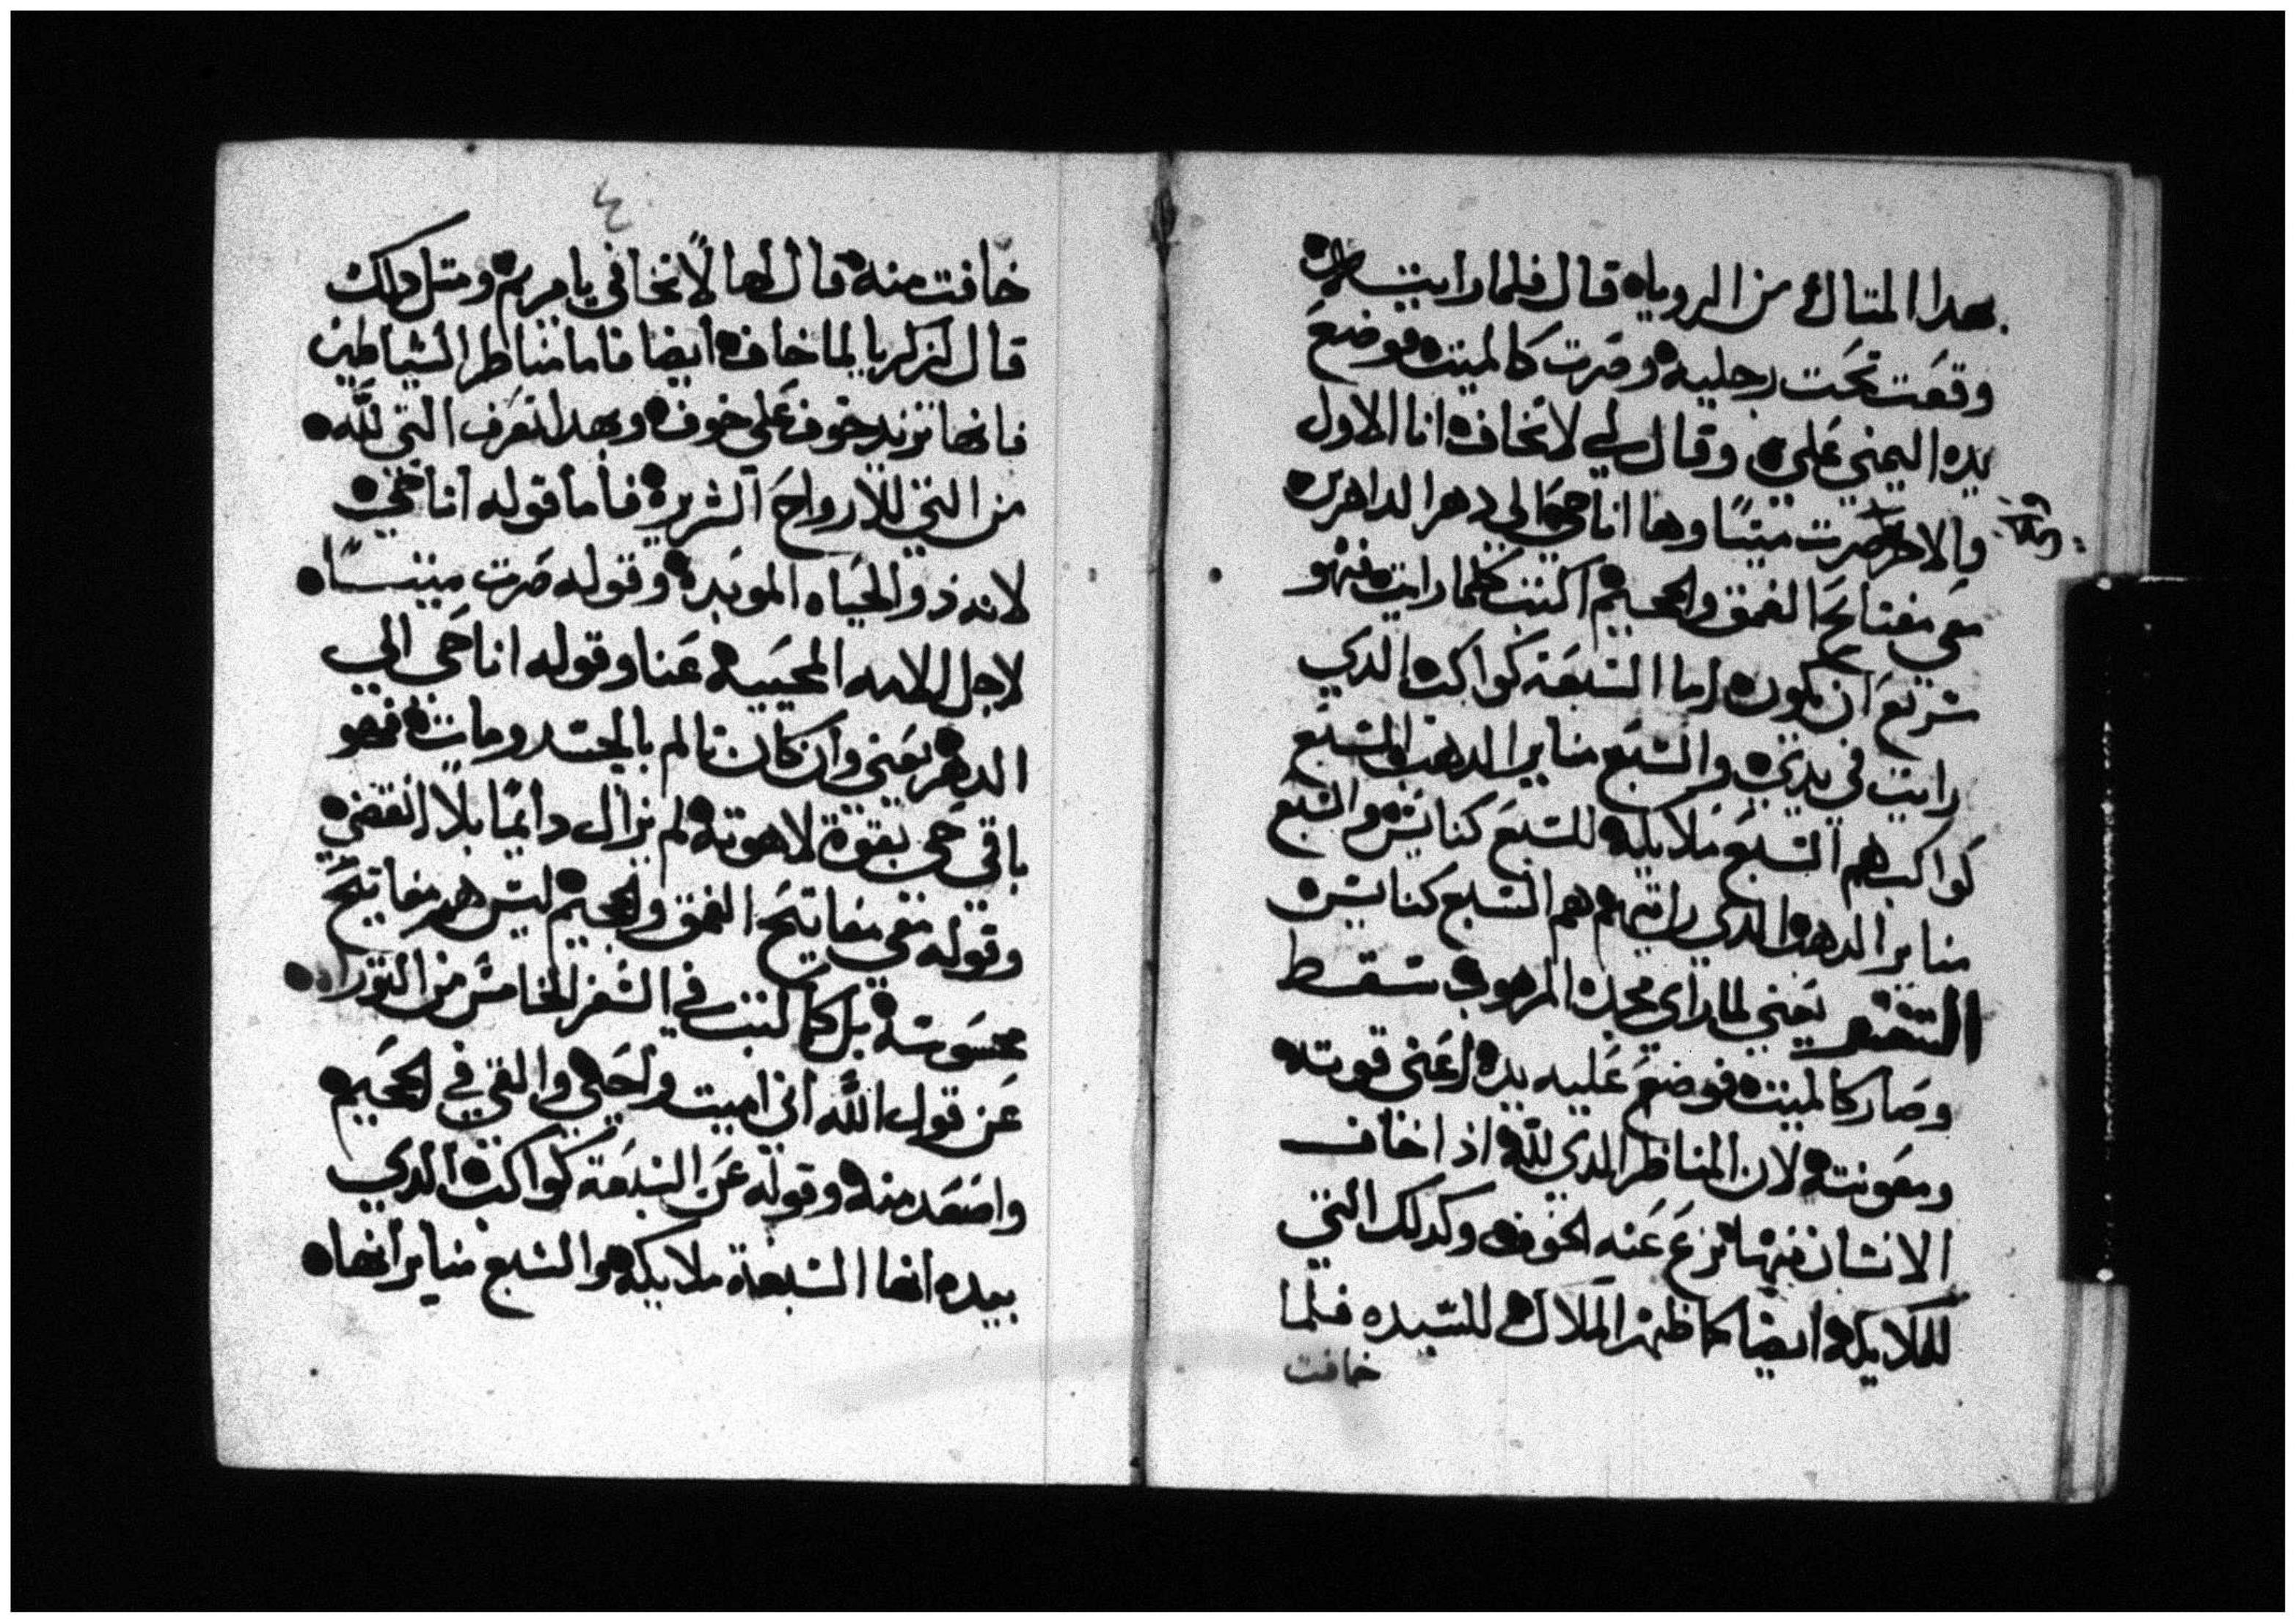 بهدا المتال من الرويا ه قال فلما رايت
وقعت تحت رجليه وصرت كالميت فوضع
يده اليمني علي ه وقال لي لا تخاف انا الاول
والاخر صرت ميتًا وها انا حي الي دهر الداهرين
معي مفتايح العمق والجحيم اكتب كلما رايت فهو
سريع ان يكون اما السبعة كواكب الدي
رايت في يدي والسبع مناير الدهب السبع
كواكب هم السبع ملايكه للسبع كنايس والسبع
مناير الدهب الدي رايتهم هم السبع كنايس
التفسير يعني لما راي مجده المرهوب سقط
وصار كالميت فوضع عليه يده اعني قوته
ومعونته لان المناظر الدي لله اذا خاف
الانسان منها نزع عنه الخوف وكدلك التي
للملايكه ايضا كما ظهر الملاك للسيده فلما
خافت
٤
خافت منه قال لها لا تخافي يا مريم ومتل دلك
قال لزكريا لما خاف ايضا فاما مناظر الشياطين
فانها تزيد خوف علي خوف وبهدا تعرف التي لله
من التي للارواح الشريره فاما قوله انا حي
لانه ذو الحياه الموبده وقوله صرت ميتًا
لاجل الامه المحييه عنا وقوله انا حي الي
الدهر يعني وان كان تالم بالجسد ومات فهو
باقي حي بقوة لاهوته لم يزال دايمًا بلا انقضي
وقوله معي مفاتيح العمق والجحيم ليس هم مفاتيح
محسوسة بل كما كتب في السفر الخامس من التوراه
عن قول الله اني اميت واحيي والقي في الجحيم
واصعد منه وقوله عن السبعة كواكب الدي
بيده انها السبعة ملايكه والسبع مناير انها